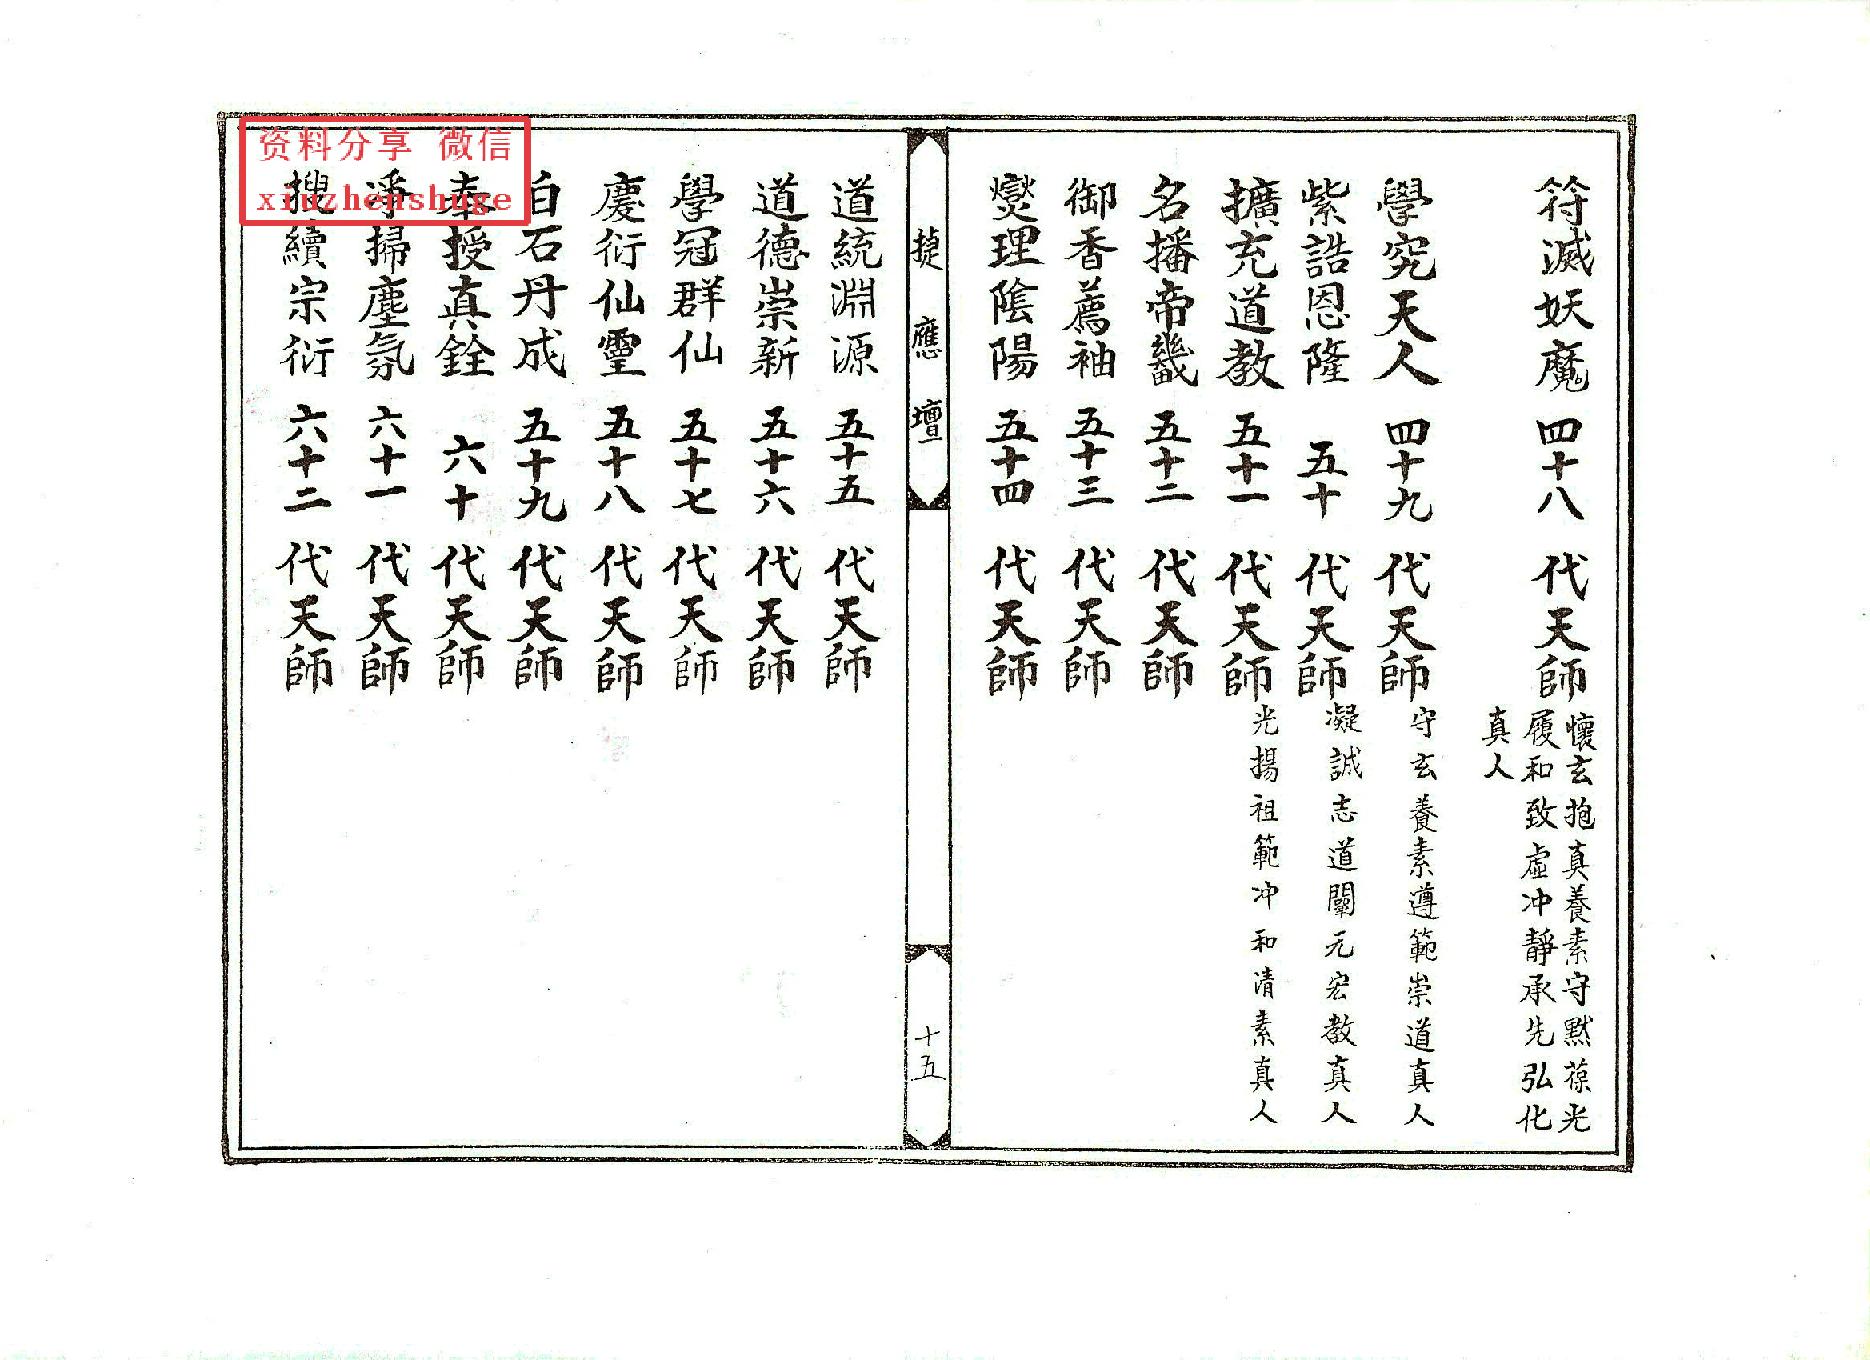 符滅妖魔 四十八 代天師 懷玄抱真養素守默葆光
履和致虛冲靜承先弘化
真人
學究天人 四十九 代天師 守玄養素遵範崇道真人
紫誥恩隆 五十 代天師 凝誠志道闡元宏教真人
擴充道教 五十一 代天師 光揚祖範冲和清素真人
名播帝畿 五十二 代天師
御香薦袖 五十三 代天師
燮理陰陽 五十四 代天師
捷應壇
十五
道統淵源 五十五 代天師
道德崇新 五十六 代天師
學冠群仙 五十七 代天師
慶衍仙靈 五十八 代天師
白石丹成 五十九 代天師
奉授真銓 六十 代天師
淨掃塵氛 六十一 代天師
搜續宗衍 六十二 代天師
资料分享 微信
xiuzhenshuge